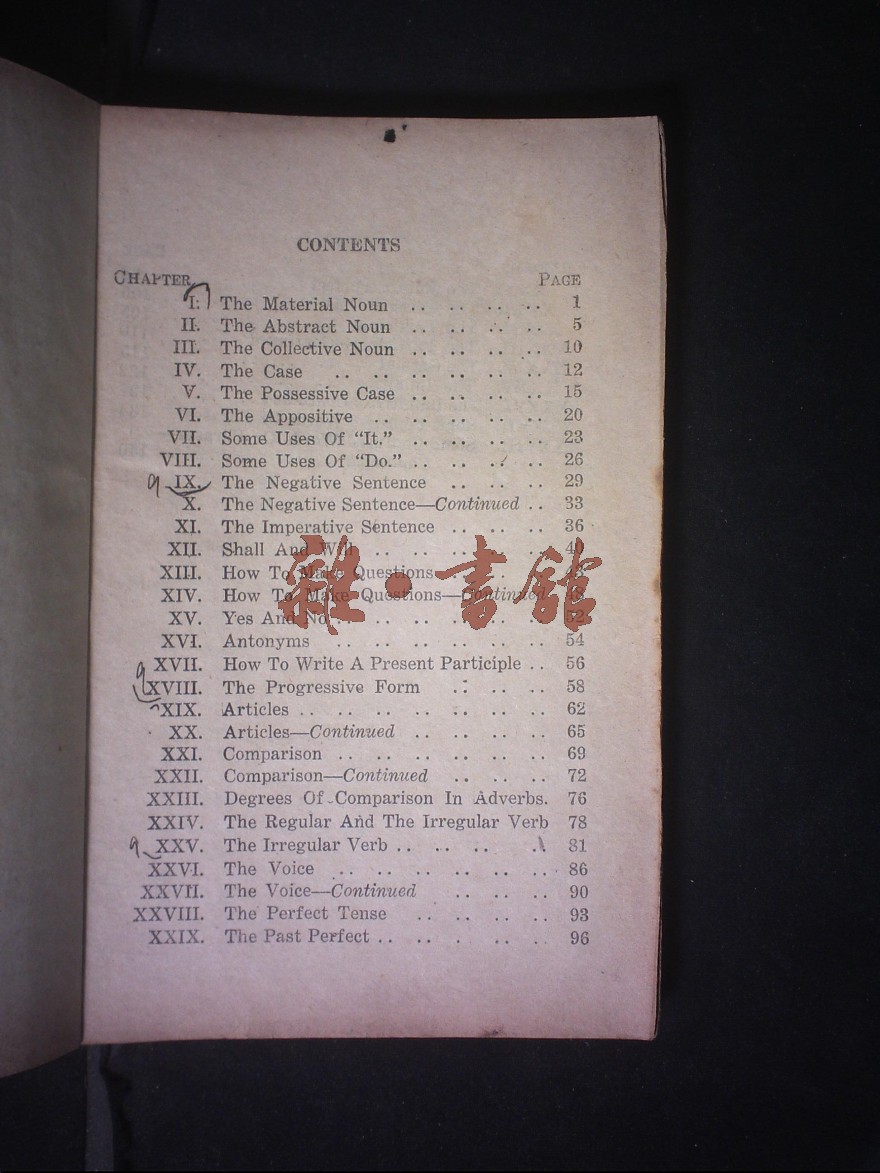 CONTENTS
CHAPTER PAGE
I. The Material Noun .. .. .. .. 1
II. The Abstract Noun .. .. .. .. 5
III. The Collective Noun .. .. .. .. 10
IV. The Case .. .. .. .. .. 12
V. The Possessive Case .. .. .. .. 15
VI. The Appositive .. .. .. .. .. 20
VII. Some Uses Of “It.” .. .. .. .. 23
VIII. Some Uses Of “Do.” .. .. .. .. 26
9 IX. The Negative Sentence .. .. .. 29
X. The Negative Sentence—Continued .. 33
XI. The Imperative Sentence .. .. .. 36
XII. Shall And Will .. .. .. .. .. 40
XIII. How To Make Questions .. .. ..
XIV. How To Make Questions—Continued 48
XV. Yes And No .. .. .. .. .. 52
雜·書館
XVI. Antonyms .. .. .. .. .. 54
XVII. How To Write A Present Participle .. 56
9 XVIII. The Progressive Form .. .. .. 58
XIX. Articles .. .. .. .. .. .. 62
XX. Articles—Continued .. .. .. .. 65
XXI. Comparison .. .. .. .. .. 69
XXII. Comparison—Continued .. .. .. 72
XXIII. Degrees Of Comparison In Adverbs. 76
XXIV. The Regular And The Irregular Verb 78
9 XXV. The Irregular Verb .. .. .. .. 81
XXVI. The Voice .. .. .. .. .. .. 86
XXVII. The Voice—Continued .. .. .. 90
XXVIII. The Perfect Tense .. .. .. .. 93
XXIX. The Past Perfect .. .. .. .. .. 96